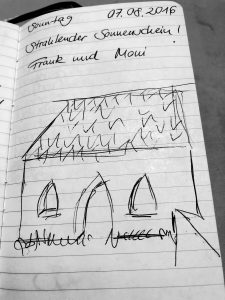 Sonntag 07.08.2016
Strahlender Sonnenschein!
Frank und Moni